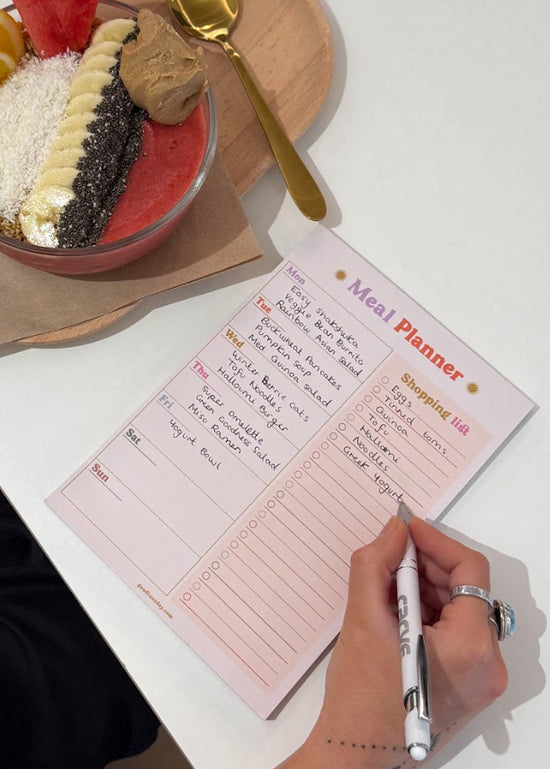 Meal Planner
Mon
Easy Shakshuka
Veggie Bean Burrito
Rainbow Asian Salad
Tue
Buckwheat Pancakes
Pumpkin Soup
Med Quinoa Salad
Wed
Winter Berrie Oats
Tofu Noodles
Halloumi Burger
Thu
Super omelette
Green Goodness Salad
Miso Ramen
Fri
Yogurt Bowl
Sat
Sun
Shopping list
Eggs
Tinned toms
Quinoa
Tofu
Halloumi
Noodles
Greek Yogurt